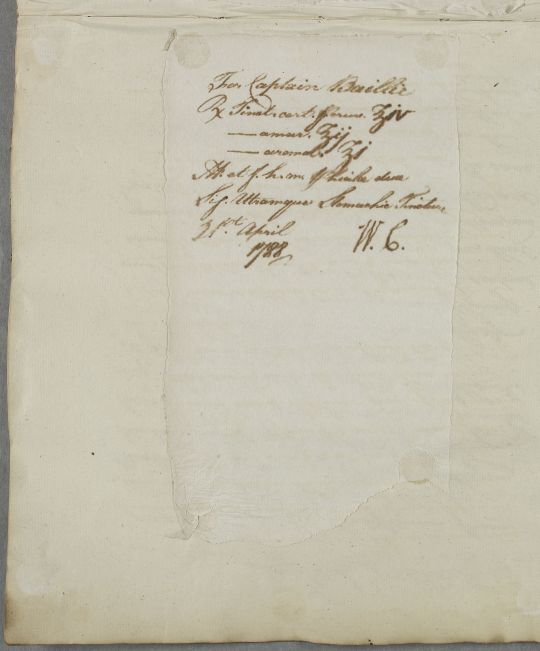 For Captain Baillie
℞ Tinct: cort: peruv. ℥iv
— amar. ℥ij
— aromat. ℥j
M. et f. h. m. phialæ duæ
Sig. Utramque Stomachic Tincture
21st. April
1788 W. C.